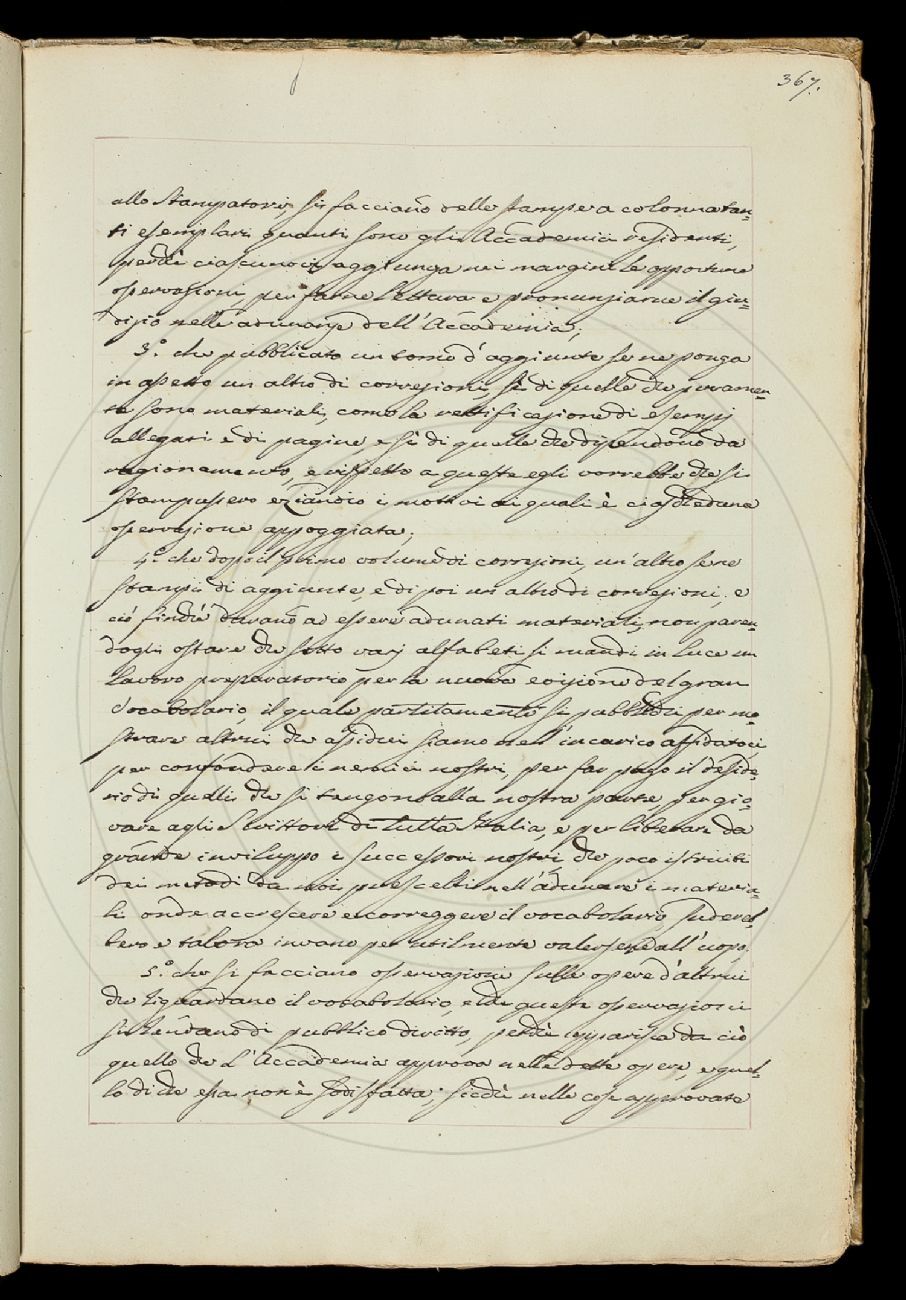 367.
allo Stampatore, si facciano delle stampe a colonna tan-
ti esemplari quanti sono gli Accademici residenti,
perchè ciascuno ci aggiunga nei margini le opportune
osservazioni per farne lettura e pronunziarne il giu-
dizio nelle adunanze dell'Accademia;
3.° che pubblicato un tomo d'aggiunte se ne ponga
in assetto un altro di correzioni, sì di quelle che peramen-
te sono materiali, come la rettificazione di esempj
allegati e di pagine, e sì di quelle che dipendono da
ragionamento, e rispetto a queste egli vorrebbe che si
stampassero eziandio i motivi ai quali è ciascheduna
osservazione appoggiata;
4.° che dopo il primo volume di correzioni, un'altro se ne
stampi di aggiunte, e di poi un'altro di correzioni, e
ciò finchè durano ad essere adunati materiali, non paren-
dogli ostare che sotto varj alfabeti si mandi in luce un
lavoro preparatorio per la nuova edizione del gran
Vocabolario, il quale partitamente si pubblichi per mo-
strare altrui che assidui siamo nell'incarico affidatoci
per confondere i nemici nostri, per far pago il deside-
rio di quelli che si tengono alla nostra parte per gio-
vare agli Scrittori di tutta Italia, e per liberare da
grande inviluppo i successori nostri che poco istruiti
dei metodi da noi prescelti nell'adunare i materia-
li onde accrescere e correggere il vocabolario, sudereb-
bero e talora invano per utilmente valersene all'uopo.
5.° che si facciano osservazioni sulle opere d'altrui
che riguardano il vocabolario, e che queste osservazioni
si rendano di pubblico diritto, perchè apparisca da ciò
quello che l'Accademia approva nelle dette opere, e quel-
lo di che essa non è sodisfatta: sicchè nelle cose approvate